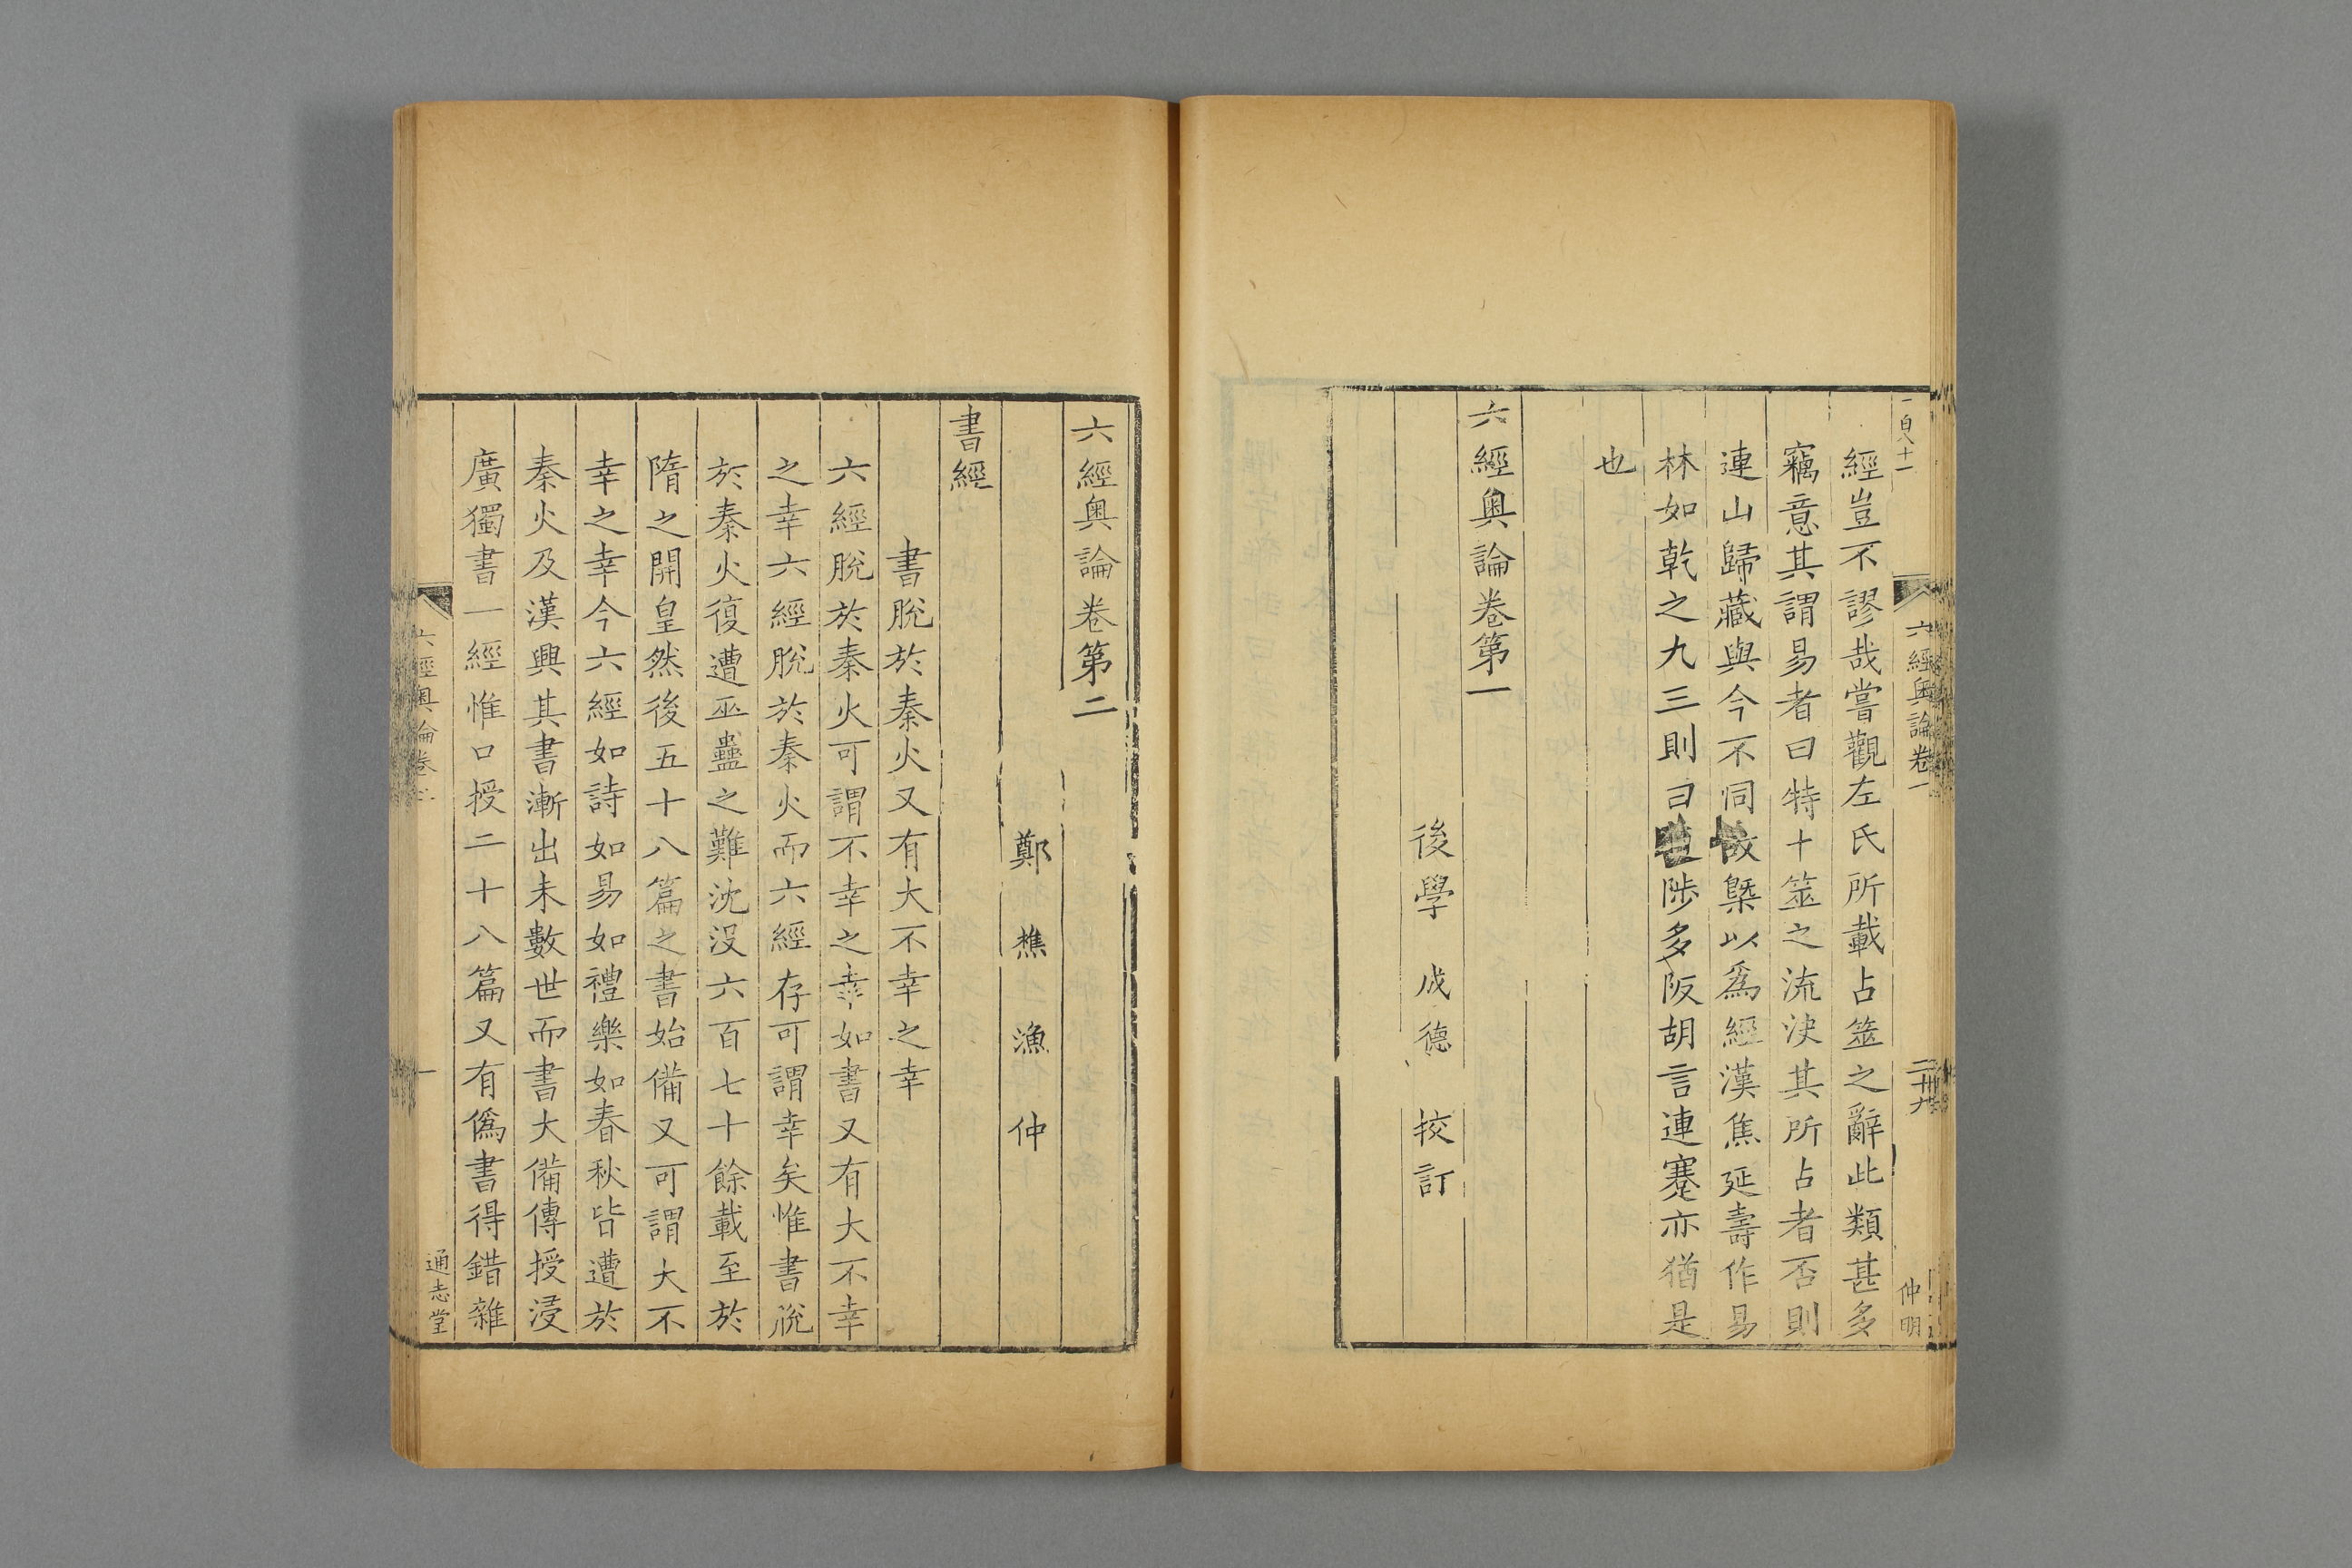 一百八十一
經豈不謬哉嘗觀左氏所載占筮之辭此類甚多
竊意其謂易者曰特十筮之流決其所占者否則
連山歸藏與今不同故槩以爲經漢焦延壽作易
林如乾之九三則曰陟多阪胡言連蹇亦猶是
也
六經奧論卷第一
後學 成德 挍訂
六經奧論卷一
仲明
六經奧論卷第二
鄭樵漁仲
書經
書脫於秦火又有大不幸之幸
六經脫於秦火可謂不幸之幸如書又有大不幸
之幸六經脫於秦火而六經存可謂幸矣惟書脫
於秦火復遭巫蠱之難沈沒六百七十餘載至於
隋之開皇然後五十八篇之書始備又可謂大不
幸之幸今六經如詩如易如禮樂如春秋皆遭於
秦火及漢興其書漸出未數世而書大備傳授浸
廣獨書一經惟口授二十八篇又有僞書得錯雜
六經奧論卷
一
通志堂